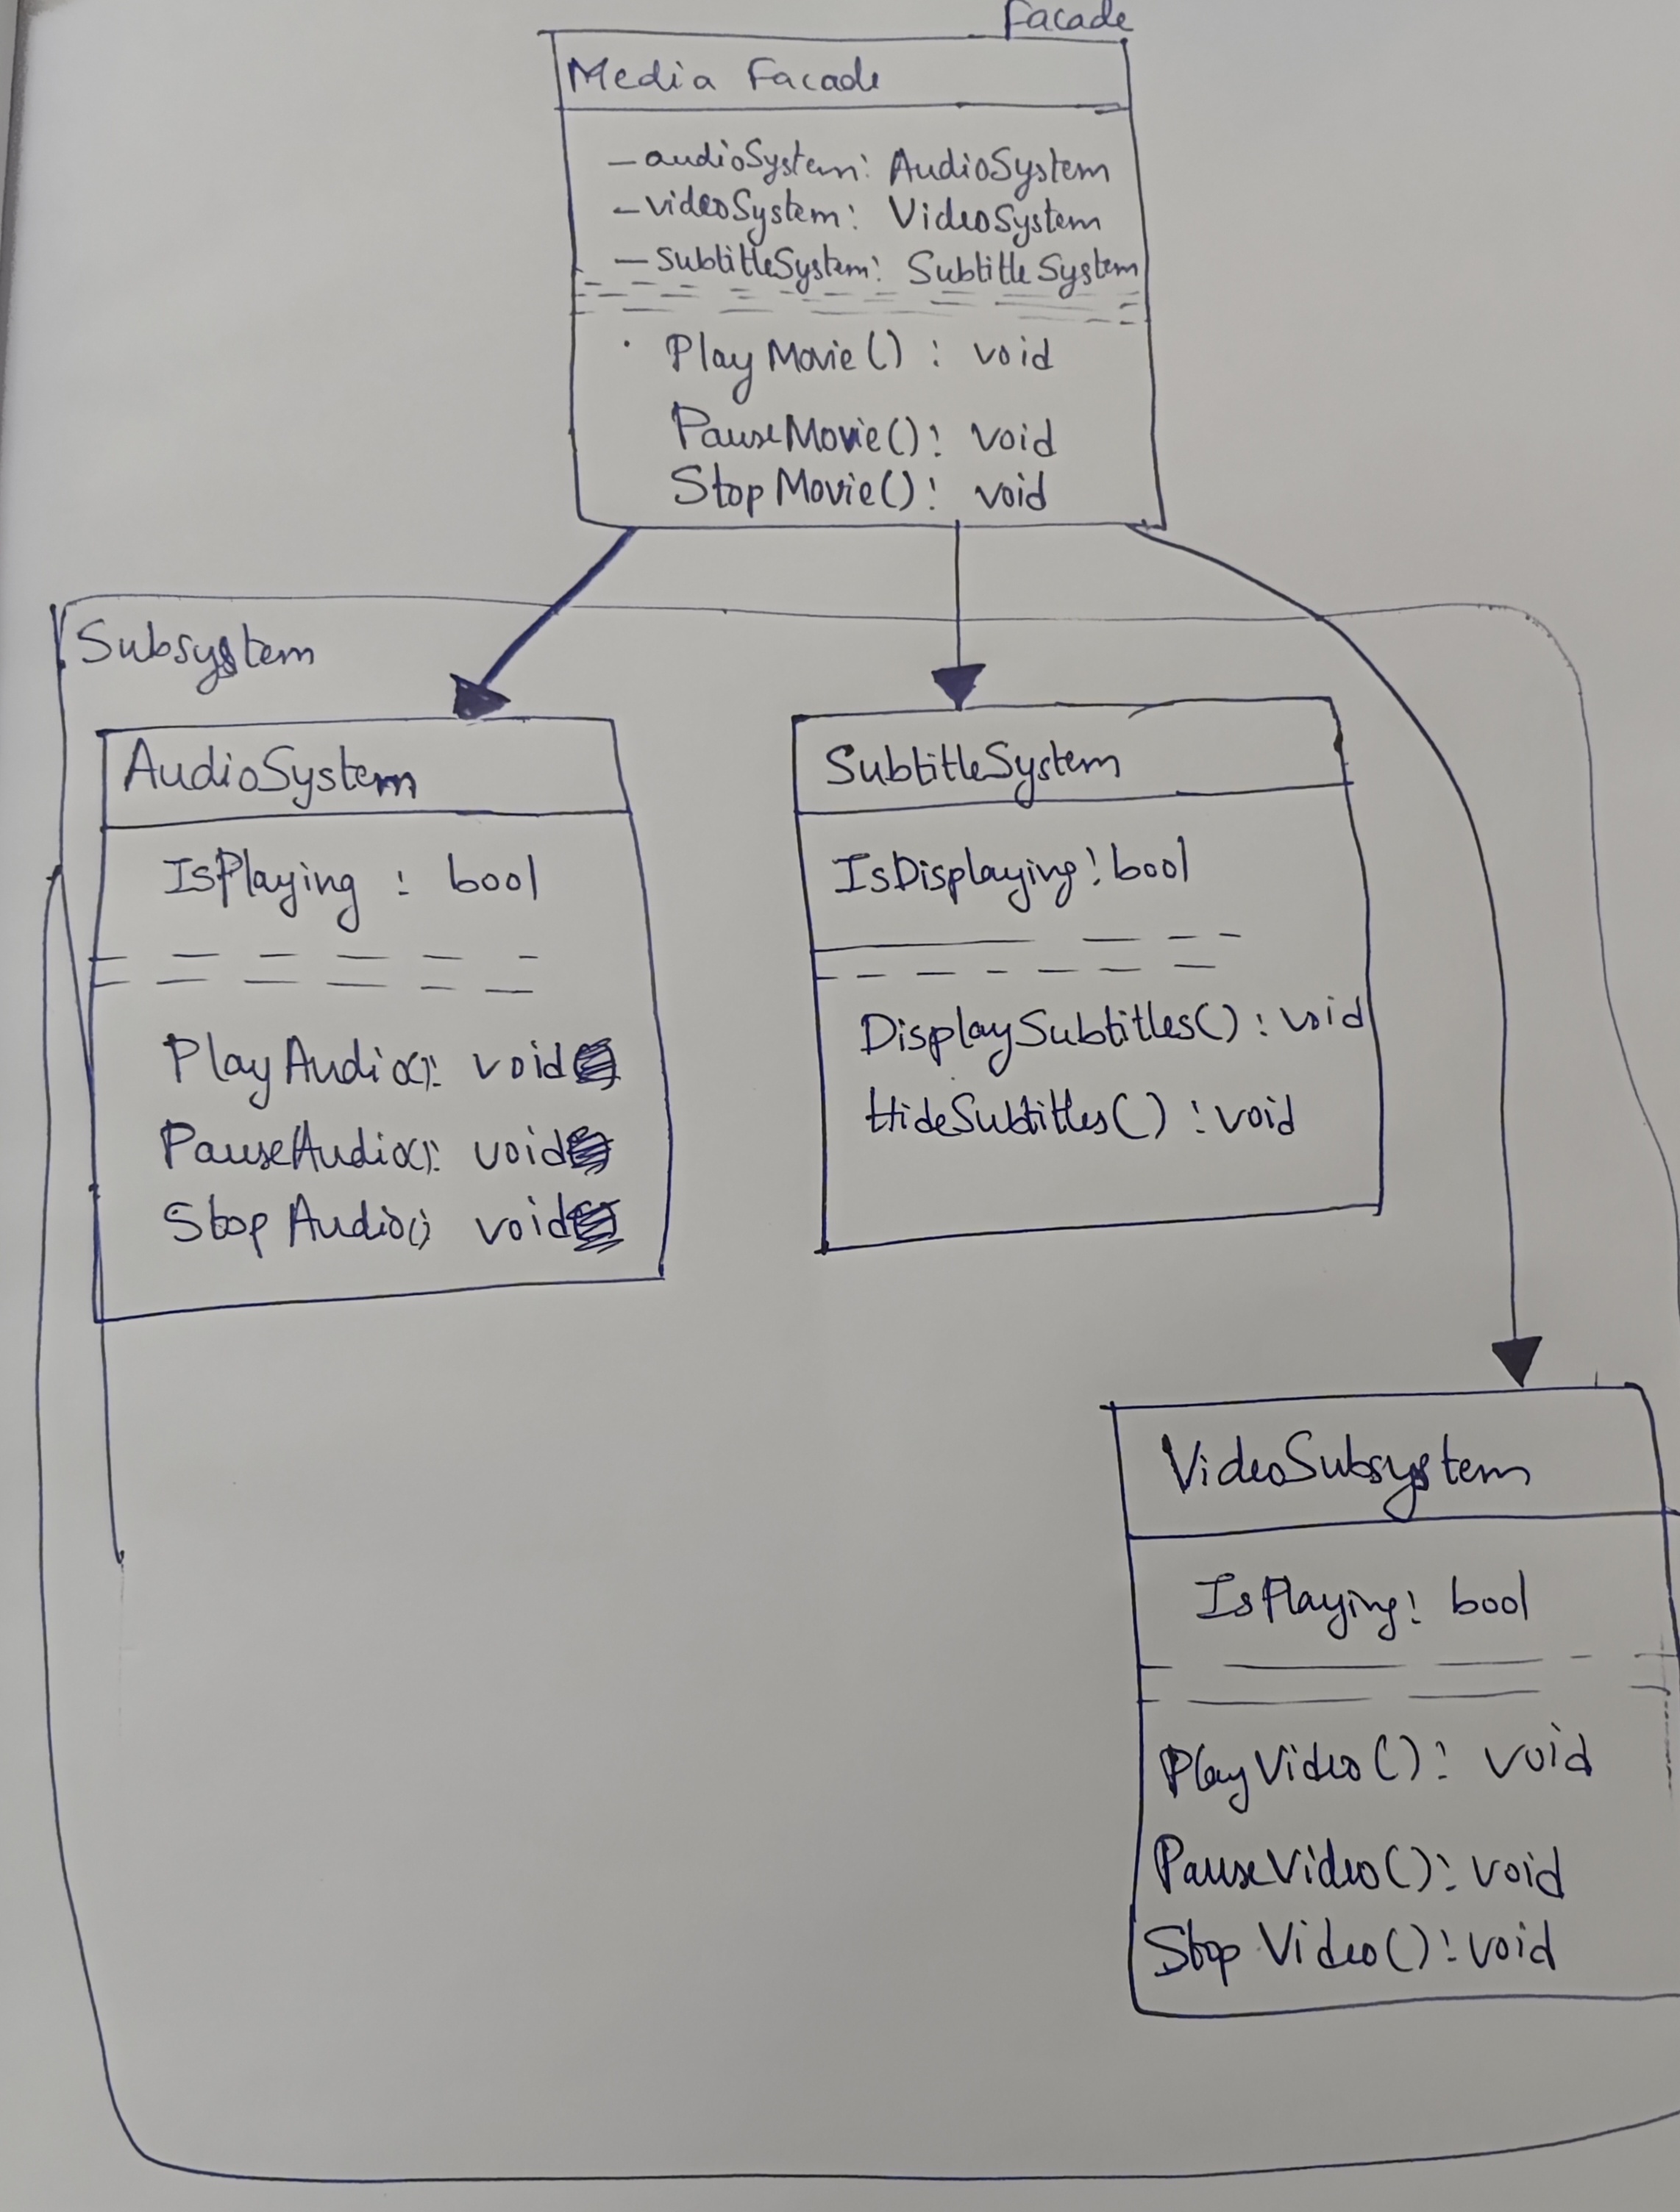 Facade
Media Facade
- audioSystem: AudioSystem
- videoSystem: VideoSystem
- SubtitleSystem: SubtitleSystem
PlayMovie() : void
PauseMovie() : void
StopMovie() : void
Subsystem
AudioSystem
IsPlaying : bool
PlayAudio(): void
PauseAudio(): void
StopAudio() void
SubtitleSystem
IsDisplaying: bool
DisplaySubtitles() : void
HideSubtitles() : void
VideoSubsystem
IsPlaying: bool
PlayVideo(): void
PauseVideo(): void
Stop Video(): void